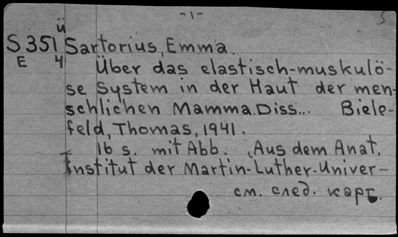 -1- 5
ü
S 351 Sartorius, Emma.
E 4 Über das elastisch-muskulö-
se System in der Haut der men-
schlichen Mamma. Diss... Biele-
feld, Thomas, 1941.
16 s. mit Abb. Aus dem Anat.
Institut der Martin-Luther-Univer-
см. след. карт.